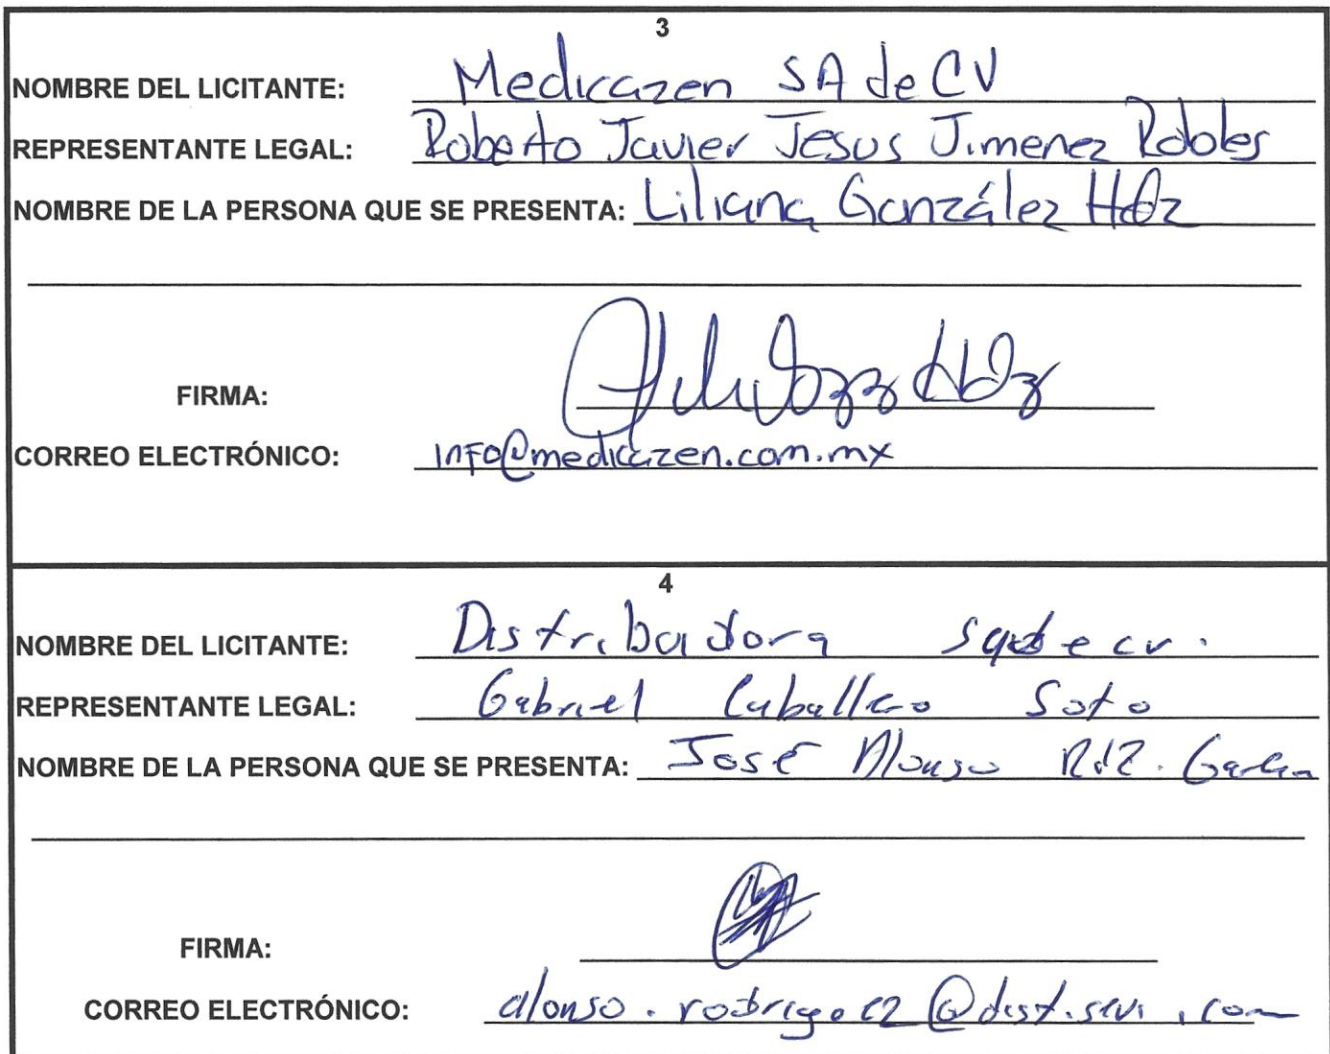 3
NOMBRE DEL LICITANTE: Medicazen SA de CV
REPRESENTANTE LEGAL: Roberto Javier Jesus Jimenez Robles
NOMBRE DE LA PERSONA QUE SE PRESENTA: Liliana González Hdz
FIRMA:
CORREO ELECTRÓNICO: info@medicazen.com.mx
4
NOMBRE DEL LICITANTE: Distribuidora sa de cv.
REPRESENTANTE LEGAL: Gabriel Caballero Soto
NOMBRE DE LA PERSONA QUE SE PRESENTA: José Alonso Rdz. García
FIRMA:
CORREO ELECTRÓNICO: